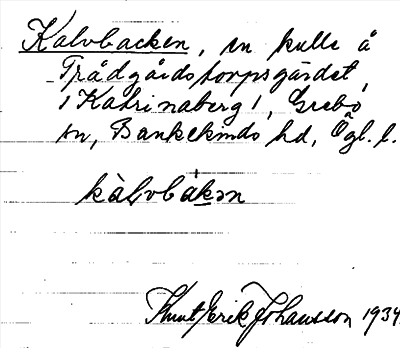 Kalvbacken, en kulle å
Trädgårdstorpsgärdet,
/Katrinaberg/, Grebo
sn, Bankekinds hd, Ögl. l.
kàlvbakən
Knut Erik Johansson 1934.